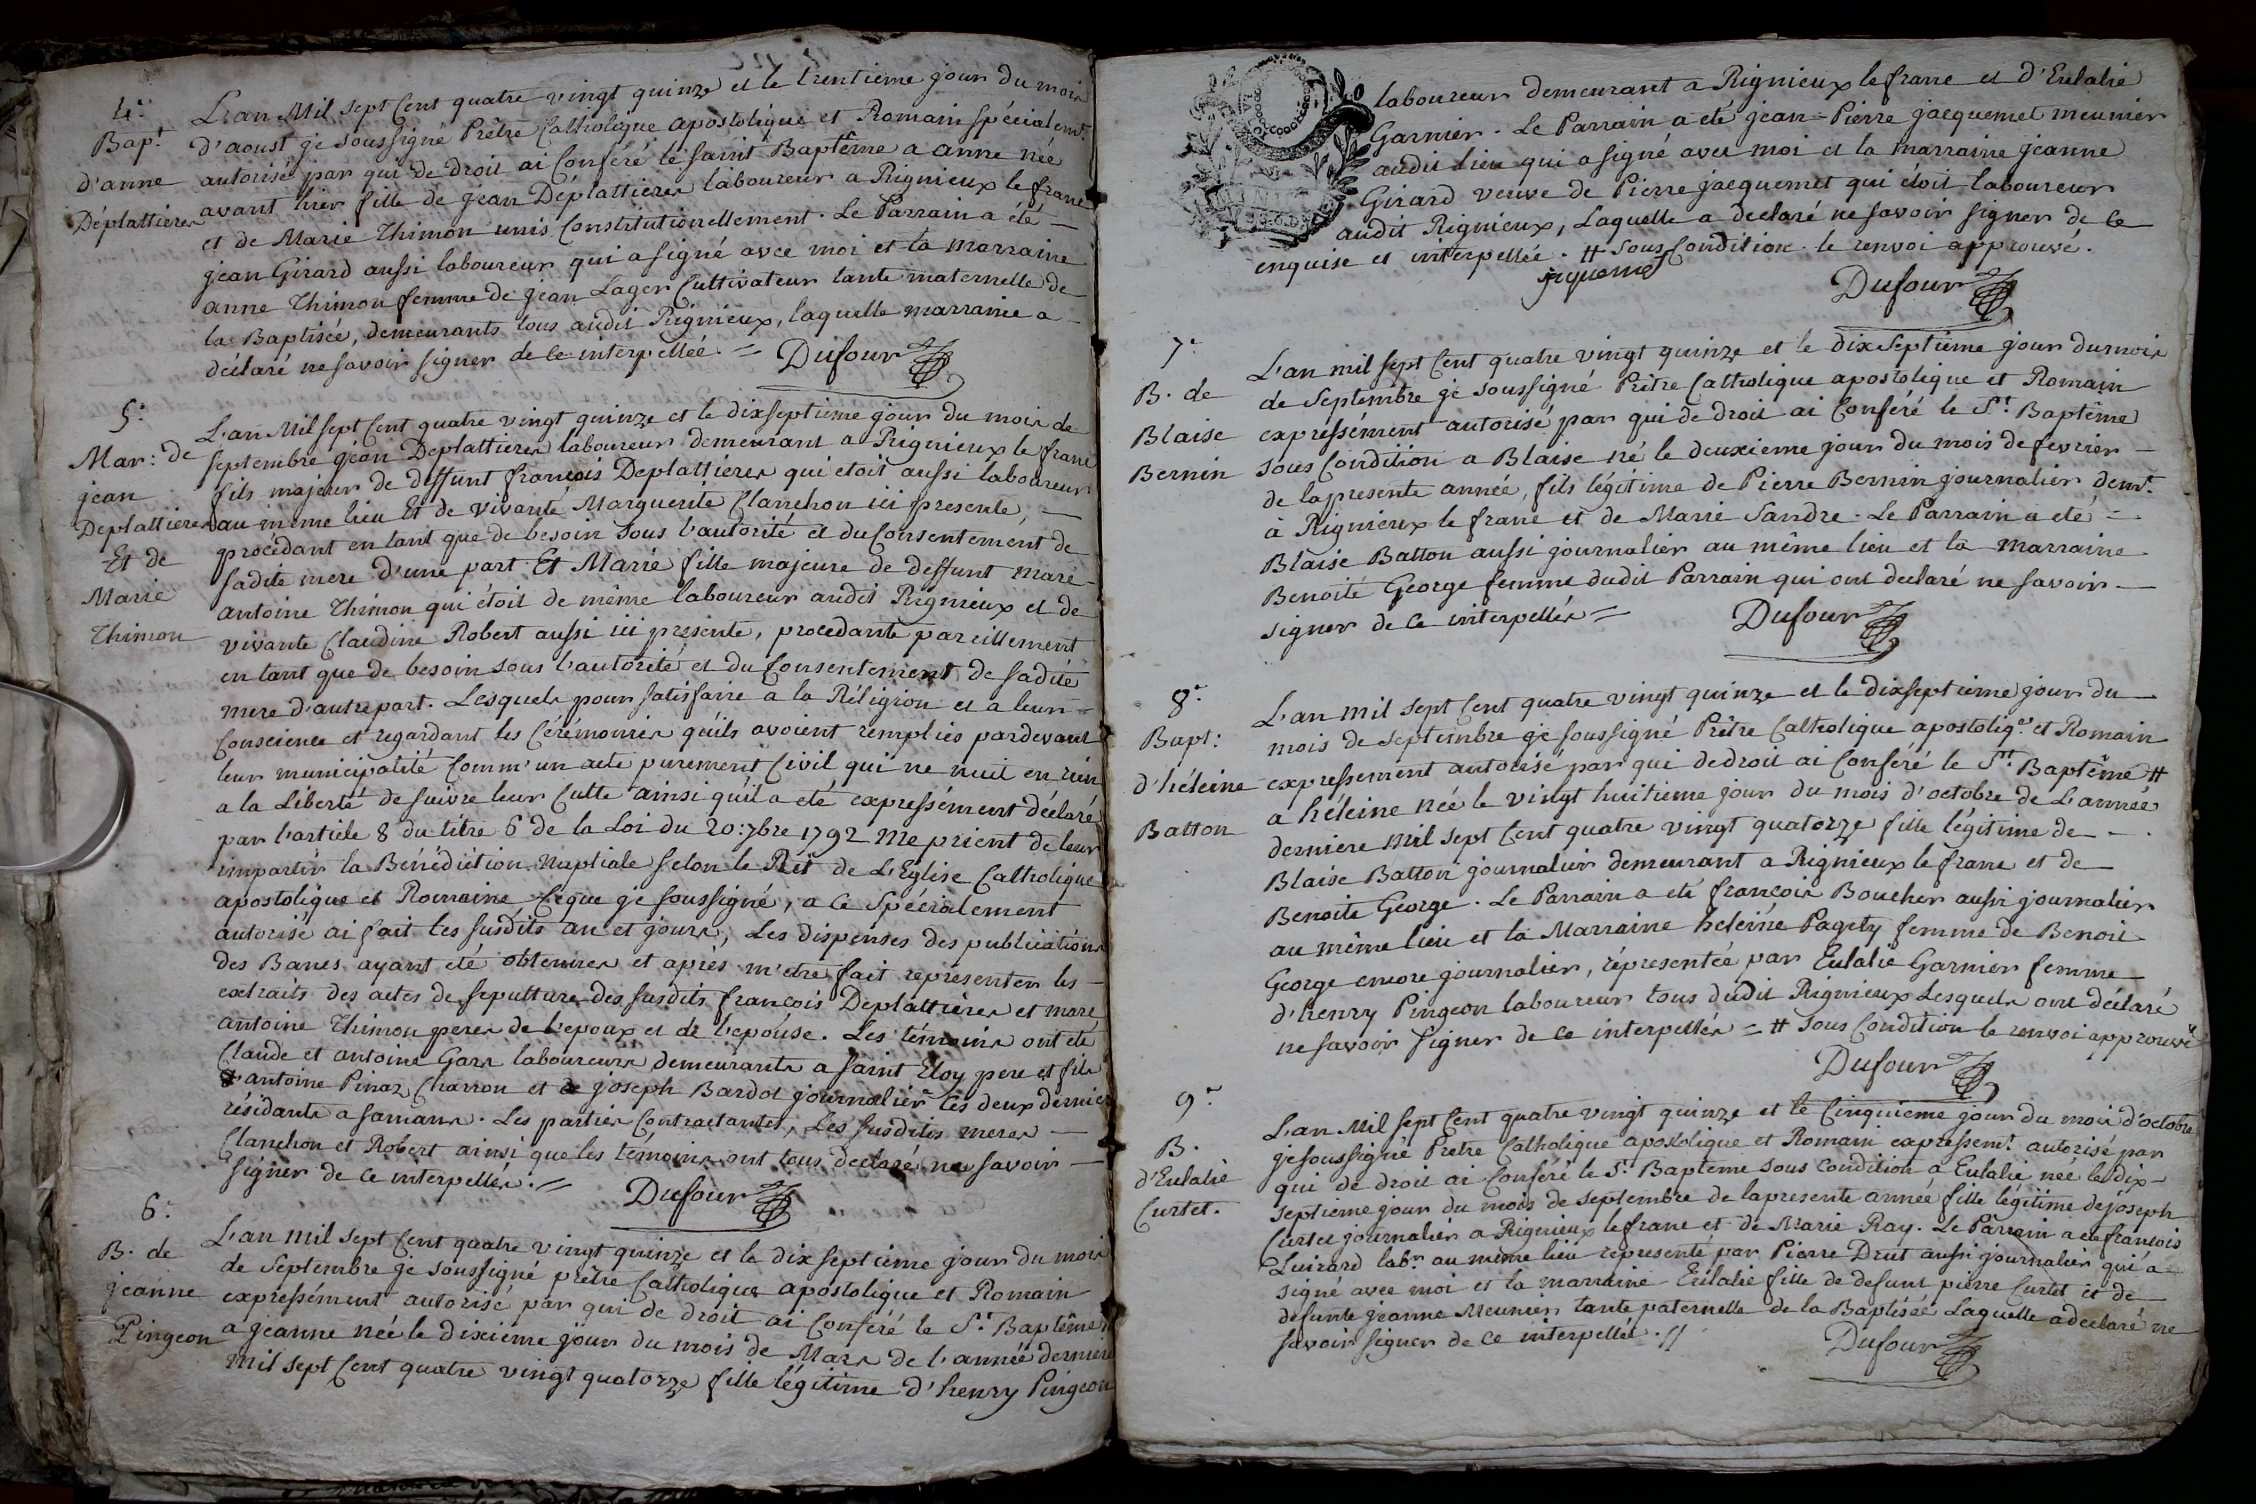 4.e
Bap.t
d'anne
Déplattieres
L'an Mil sept Cent quatre vingt quinze et le trentieme jour du mois
d'aoust je soussigné Prêtre Catholique apostolique et Romain spécialem.t
autorisé par qui de droit ai Conféré le saint Baptême a anne née
avant hier fille de jean Déplattieres laboureur a Rignieux le franc
et de Marie Thimon unis Constitutionellement. Le Parrain a été
jean Girard aussi laboureur qui a signé avec moi et la marraine
anne Thimon femme de jean Lager Cultivateur tante maternelle de
la Baptisée, demeurants tous audit Rignieux, laquelle marraine a
déclaré ne savoir signer de ce interpellée = Dufour
5.e
Mar: de
jean
Deplattieres
Et de
Marie
Thimon
L'an Mil sept Cent quatre vingt quinze et le dixseptieme jour du mois de
septembre jean Deplattieres laboureur demeurant a Rignieux le franc
fils majeur de deffunt françois Deplattieres qui etoit aussi laboureur
au même lieu Et de vivante Marguerite Clanchon ici presente,
procédant en tant que de besoin sous l'autorité et du Consentement de
sadite mere d'une part. Et Marie fille majeure de deffunt marc
antoine Thimon qui étoit de même laboureur audit Rignieux et de
vivante Claudine Robert aussi ici presente, procedante pareillement
en tant que de besoin sous l'autorité et du Consentement de sadite
mere d'autre part. Lesquels pour satisfaire a la Réligion et a leur
Conscience et regardant les Cérémonies qu'ils avoient remplies pardevant
leur municipalité Comm'un acte purement Civil qui ne nuit en rien
a la Liberté de suivre leur Culte ainsi qu'il a eté expressément déclaré
par l'article 8 du titre 6 de la Loi du 20: 7bre 1792 me prient de leur
impartir la Bénédiction Nuptiale selon le Rit de L'Eglise Catholique
apostolique et Romaine, Ce que je soussigné, a ce Spécialement
autorisé ai fait les susdits an et jours, Les dispenses des publications
des Bancs ayant été obtenues et après m'etre fait representer les
extraits des actes de sepulture des susdits françois Deplattieres et marc
antoine Thimon peres de l'epoux et de l'epouse. Les témoins ont été
Claude et antoine Gara laboureurs demeurants a saint Eloy pere et fils
antoine Pinaz Charron et joseph Bardot journalier les deux derniers
résidants a samans. Les parties Contractantes, Les susdites meres
Clanchon et Robert ainsi que les témoins ont tous declaré ne savoir
signer de ce interpellés. = Dufour
6.e
B. de
jeanne
Pingeon
L'an mil sept Cent quatre vingt quinze et le dix septieme jour du mois
de Septembre je soussigné prêtre Catholique apostolique et Romain
expressément autorisé par qui de droit ai Conféré le S.t Baptême
a jeanne née le dixieme jour du mois de Mars de l'année derniere
mil sept Cent quatre vingt quatorze fille légitime d'henry Pingeon
laboureur demeurant a Rignieux le franc et d'Eulalie
Garnier. Le Parrain a eté jean-Pierre jacquemet meunier
audit lieu qui a signé avec moi et la marraine jeanne
Girard veuve de Pierre jacquemet qui étoit laboureur
audit Rignieux, Laquelle a declaré ne savoir signer de ce
enquise et interpellée. # sous Condition. le renvoi approuvé.
Dufour
7.e
B. de
Blaise
Bernin
L'an mil sept Cent quatre vingt quinze et le dix septieme jour du mois
de Septembre je soussigné Prêtre Catholique apostolique et Romain
expréssément autorisé par qui de droit ai Conféré le S.t Baptême
sous Condition a Blaise né le deuxieme jour du mois de fevrier
de la presente année, fils légitime de Pierre Bernin journalier dem.t
à Rignieux le franc et de Marie Sandre. Le Parrain a eté =
Blaise Batton aussi journalier au même lieu et la marraine
Benoite George femme dudit Parrain qui ont declaré ne savoir
signer de ce interpellés = Dufour
8.e
Bapt:
d'héleine
Batton
L'an mil sept Cent quatre vingt quinze et le dixseptieme jour du
mois de septembre je soussigné Prêtre Catholique apostoliq.e et Romain
expressement autorisé par qui de droit ai Conféré le S.t Baptême #
a héleine née le vingt huitieme jour du mois d'octobre de L'année
derniere mil sept Cent quatre vingt quatorze fille légitime de
Blaise Batton journalier demeurant a Rignieux le franc et de
Benoite George. Le Parrain a eté françois Boucher aussi journalier
au même lieu et la Marraine heleine Pagety femme de Benoit
George encore journalier, réprésentée par Eulalie Garnier femme
d'henry Pingeon laboureur tous dudit Rignieux Lesquels ont déclaré
ne savoir signer de ce interpellés = # sous Condition le renvoi approuvé
Dufour
9.e
B.
d'Eulalie
Curtet.
L'an Mil sept Cent quatre vingt quinze et le Cinquieme jour du mois d'octobre
je soussigné Prêtre Catholique apostolique et Romain expressem.t autorisé par
qui de droit ai Conféré le S.t Bapteme sous condition a Eulalie née le dix-
septieme jour du mois de septembre de la presente année fille légitime de joseph
Curtet journalier a Rignieux le franc et de Marie Ray. Le Parrain a eté françois
Luizard lab.r au même lieu representé par Pierre Drut aussi journalier qui a
signé avec moi et la marraine Eulalie fille de defunt pierre Curtet et de
defunte jeanne Meunier tante paternelle de la Baptisée Laquelle a declaré ne
savoir signer de ce interpellée. //
Dufour